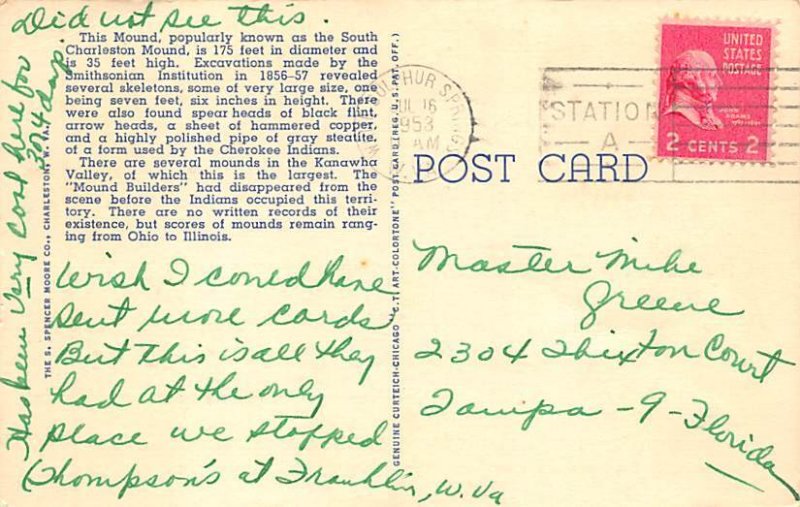 Did not see this.
This Mound, popularly known as the South
Charleston Mound, is 175 feet in diameter and
is 35 feet high. Excavations made by the
Smithsonian Institution in 1856-57 revealed
several skeletons, some of very large size, one
being seven feet, six inches in height. There
were also found spear heads of black flint,
arrow heads, a sheet of hammered copper,
and a highly polished pipe of gray steatite,
of a form used by the Cherokee Indians.
There are several mounds in the Kanawha
Valley, of which this is the largest. The
"Mound Builders" had disappeared from the
scene before the Indians occupied this terri-
tory. There are no written records of their
existence, but scores of mounds remain rang-
ing from Ohio to Illinois.
Wish I could have
sent more cards
But this is all they
had at the only
place we stopped
(Thompson's at Franklin, W. Va
Has been Very cool here for
3 or 4 days.
THE S. SPENCER MOORE CO., CHARLESTON, W. VA.
GENUINE CURTEICH-CHICAGO "C.T. ART-COLORTONE" POST CARD (REG. U.S. PAT. OFF.)
POST CARD
SULPHUR SPRINGS
JUL 16
1953
AM
STATION
A
UNITED
STATES
POSTAGE
JOHN
ADAMS
2 CENTS 2
Master Mike
Greene
2304 Thixton Court
Tampa - 9 - Florida